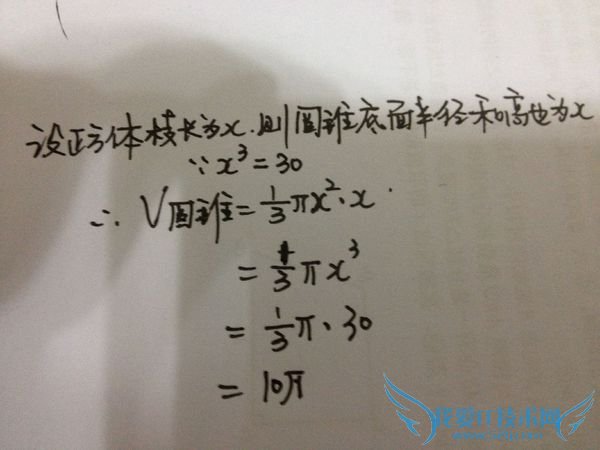 设正方体棱长为x.则圆锥底面半径和高也为x
∵x³=30
∴V圆锥=1/3πx²·x
=1/3πx³
=1/3π·30
=10π